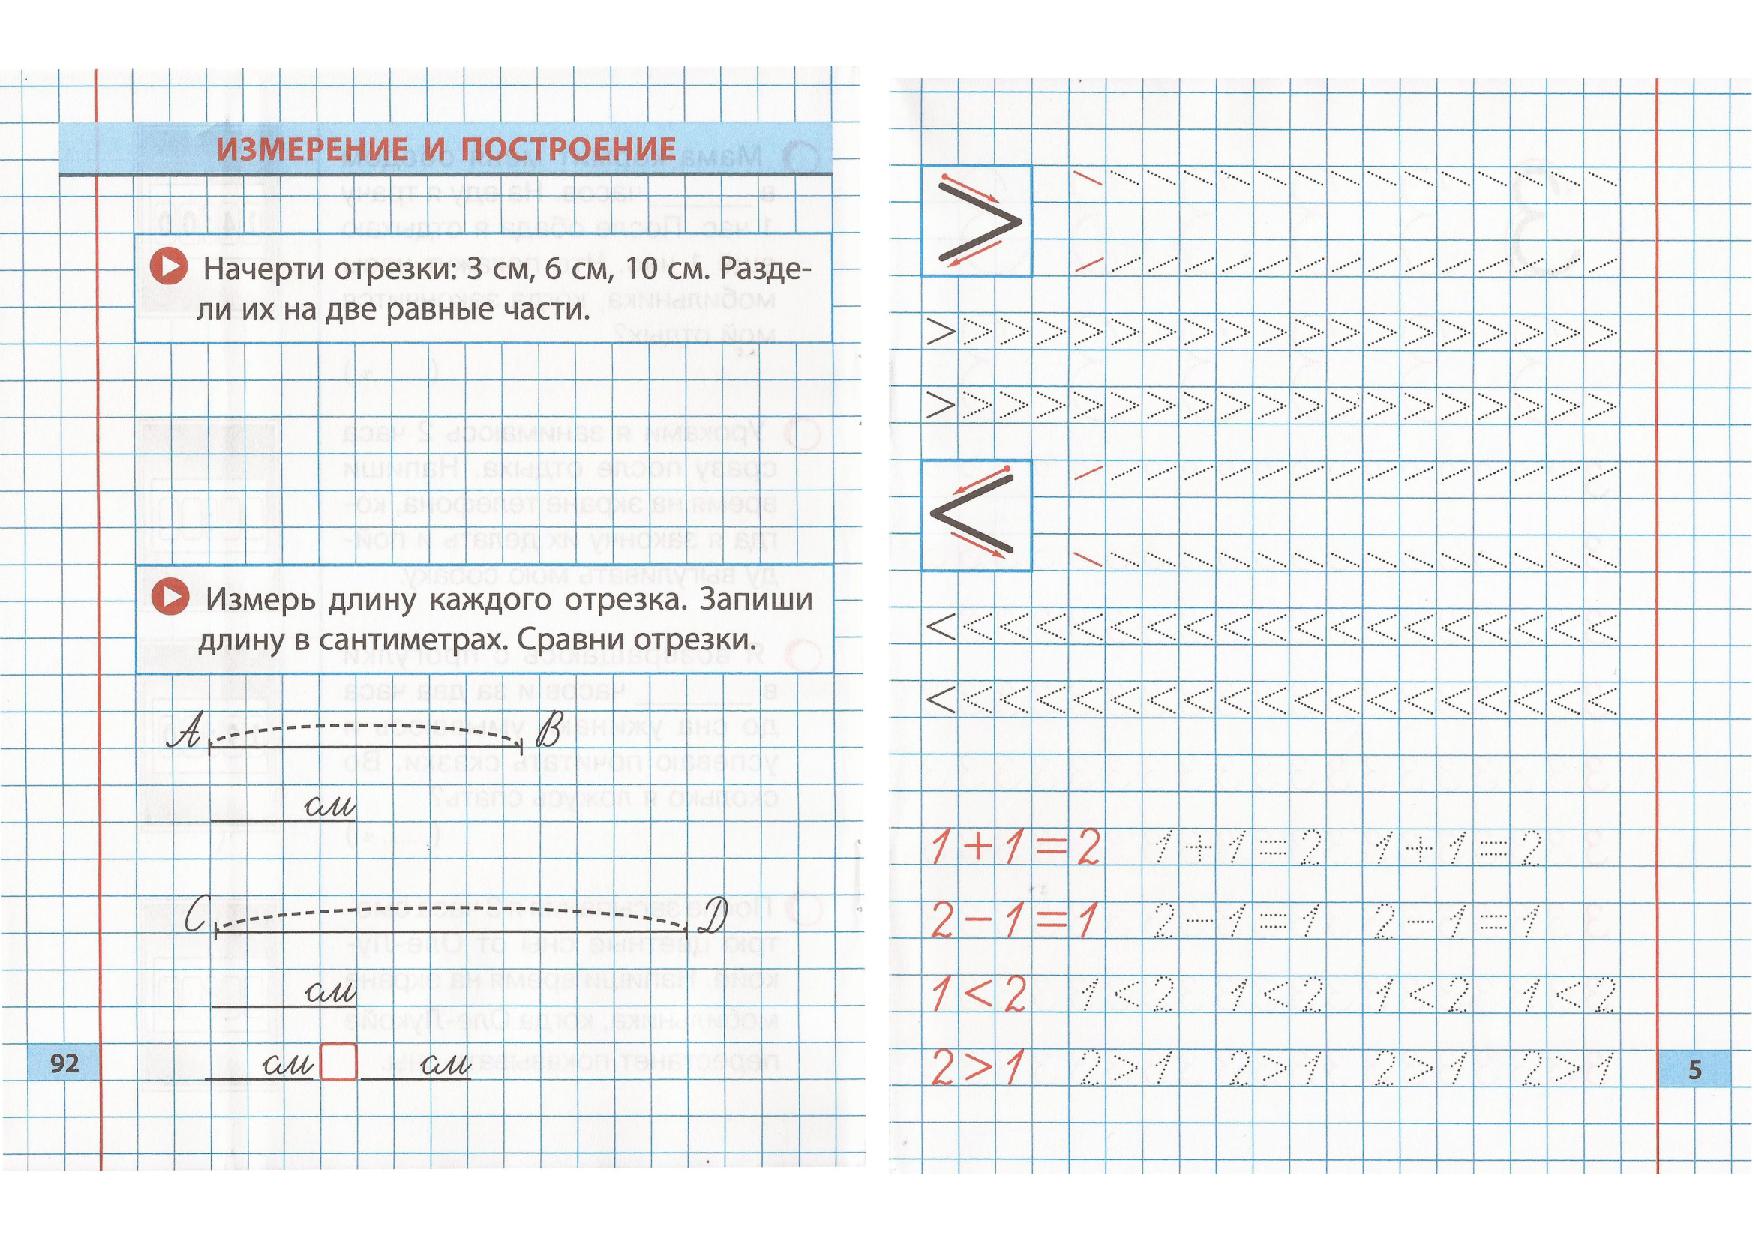 ИЗМЕРЕНИЕ И ПОСТРОЕНИЕ
Начерти отрезки: 3 см, 6 см, 10 см. Разде-
ли их на две равные части.
Измерь длину каждого отрезка. Запиши
длину в сантиметрах. Сравни отрезки.
A B
см
C D
см
см см
92
>
> > > > > > > > > > > > > > > > > > >
> > > > > > > > > > > > > > > > > > >
<
< < < < < < < < < < < < < < < < < < <
< < < < < < < < < < < < < < < < < < <
1+1=2 1+1=2 1+1=2
2-1=1 2-1=1 2-1=1
1<2 1<2 1<2 1<2 1<2
2>1 2>1 2>1 2>1 2>1
5